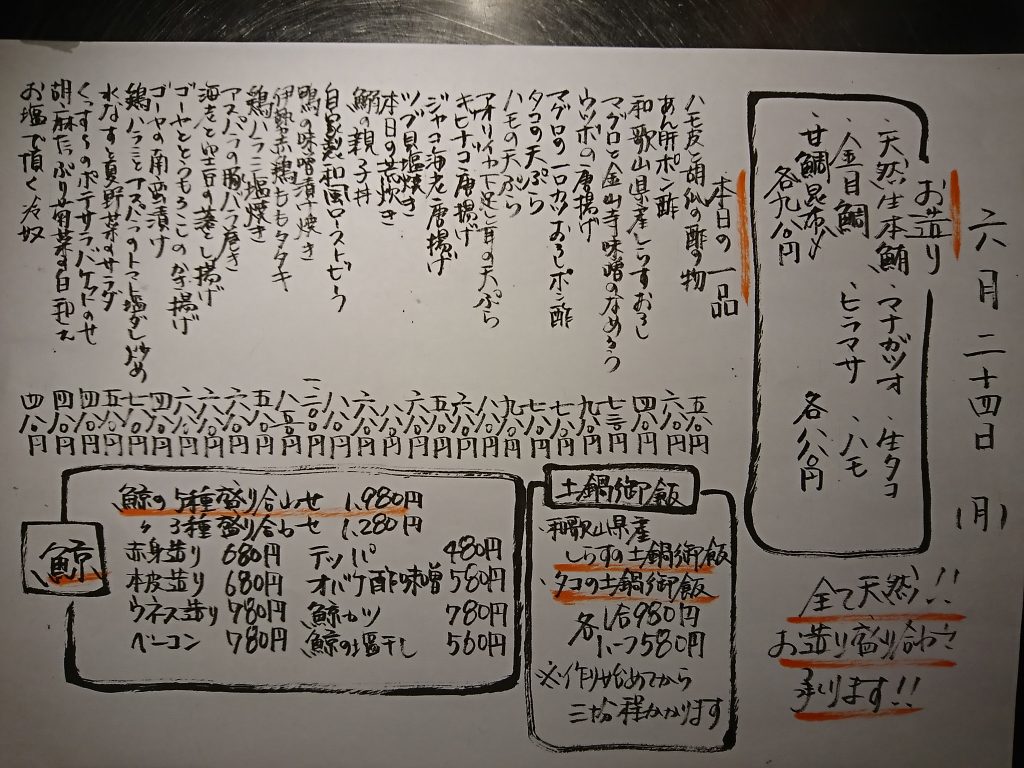 六月二十四日 (月)
お造り
・天然生本鮪 ・マナガツオ ・生タコ
・金目鯛 ・ヒラマサ ・ハモ
・甘鯛昆布〆
各九八〇円 各八八〇円
全て天然!!
お造り盛り合わせ
承ります!!
本日の一品
ハモ皮と胡瓜の酢の物 五八〇円
あん肝ポン酢 六八〇円
和歌山県産しらすおろし 四八〇円
マグロと金山寺味噌のなめろう 七三〇円
ウツボの唐揚げ 九八〇円
マグロの一口カツおろしポン酢 七八〇円
タコの天ぷら 七八〇円
ハモの天ぷら 九八〇円
アオリイカ下足と耳の天ぷら 八八〇円
キビナゴ唐揚げ 六八〇円
ジャコ海老唐揚げ 五八〇円
ツブ貝塩焼き 六八〇円
本日の煮炊き 八八〇円
鮪の親子丼 六八〇円
自家製和風ローストビーフ
鴨の味噌漬け焼き
伊勢赤鶏ももタタキ 八五〇円
鶏ハラミ塩焼き 五八〇円
アスパラの豚バラ巻き 六八〇円
海老と空豆の落とし揚げ 六八〇円
ゴーヤととうもろこしのかき揚げ 六八〇円
ゴーヤの南蛮漬け 四八〇円
鶏ハラミとアスパラのトマト塩だし炒め 七八〇円
水なすと夏野菜のサラダ 五八〇円
くんすぅのポテサラ、バケットのせ 四八〇円
胡麻たっぷり菊菜の白和え 四八〇円
お塩で頂く冷奴 四八〇円
土鍋御飯
・和歌山県産
しらすの土鍋御飯
・タコの土鍋御飯
各1合980円
ハーフ580円
※作り始めてから
三十分程かかります
鯨
鯨の5種盛り合わせ 1,980円
〃 3種盛り合わせ 1,280円
赤身造り 680円 テッパ 480円
本皮造り 680円 オバケ酢味噌 580円
ウネス造り 780円 鯨カツ 780円
ベーコン 780円 鯨の塩干し 560円